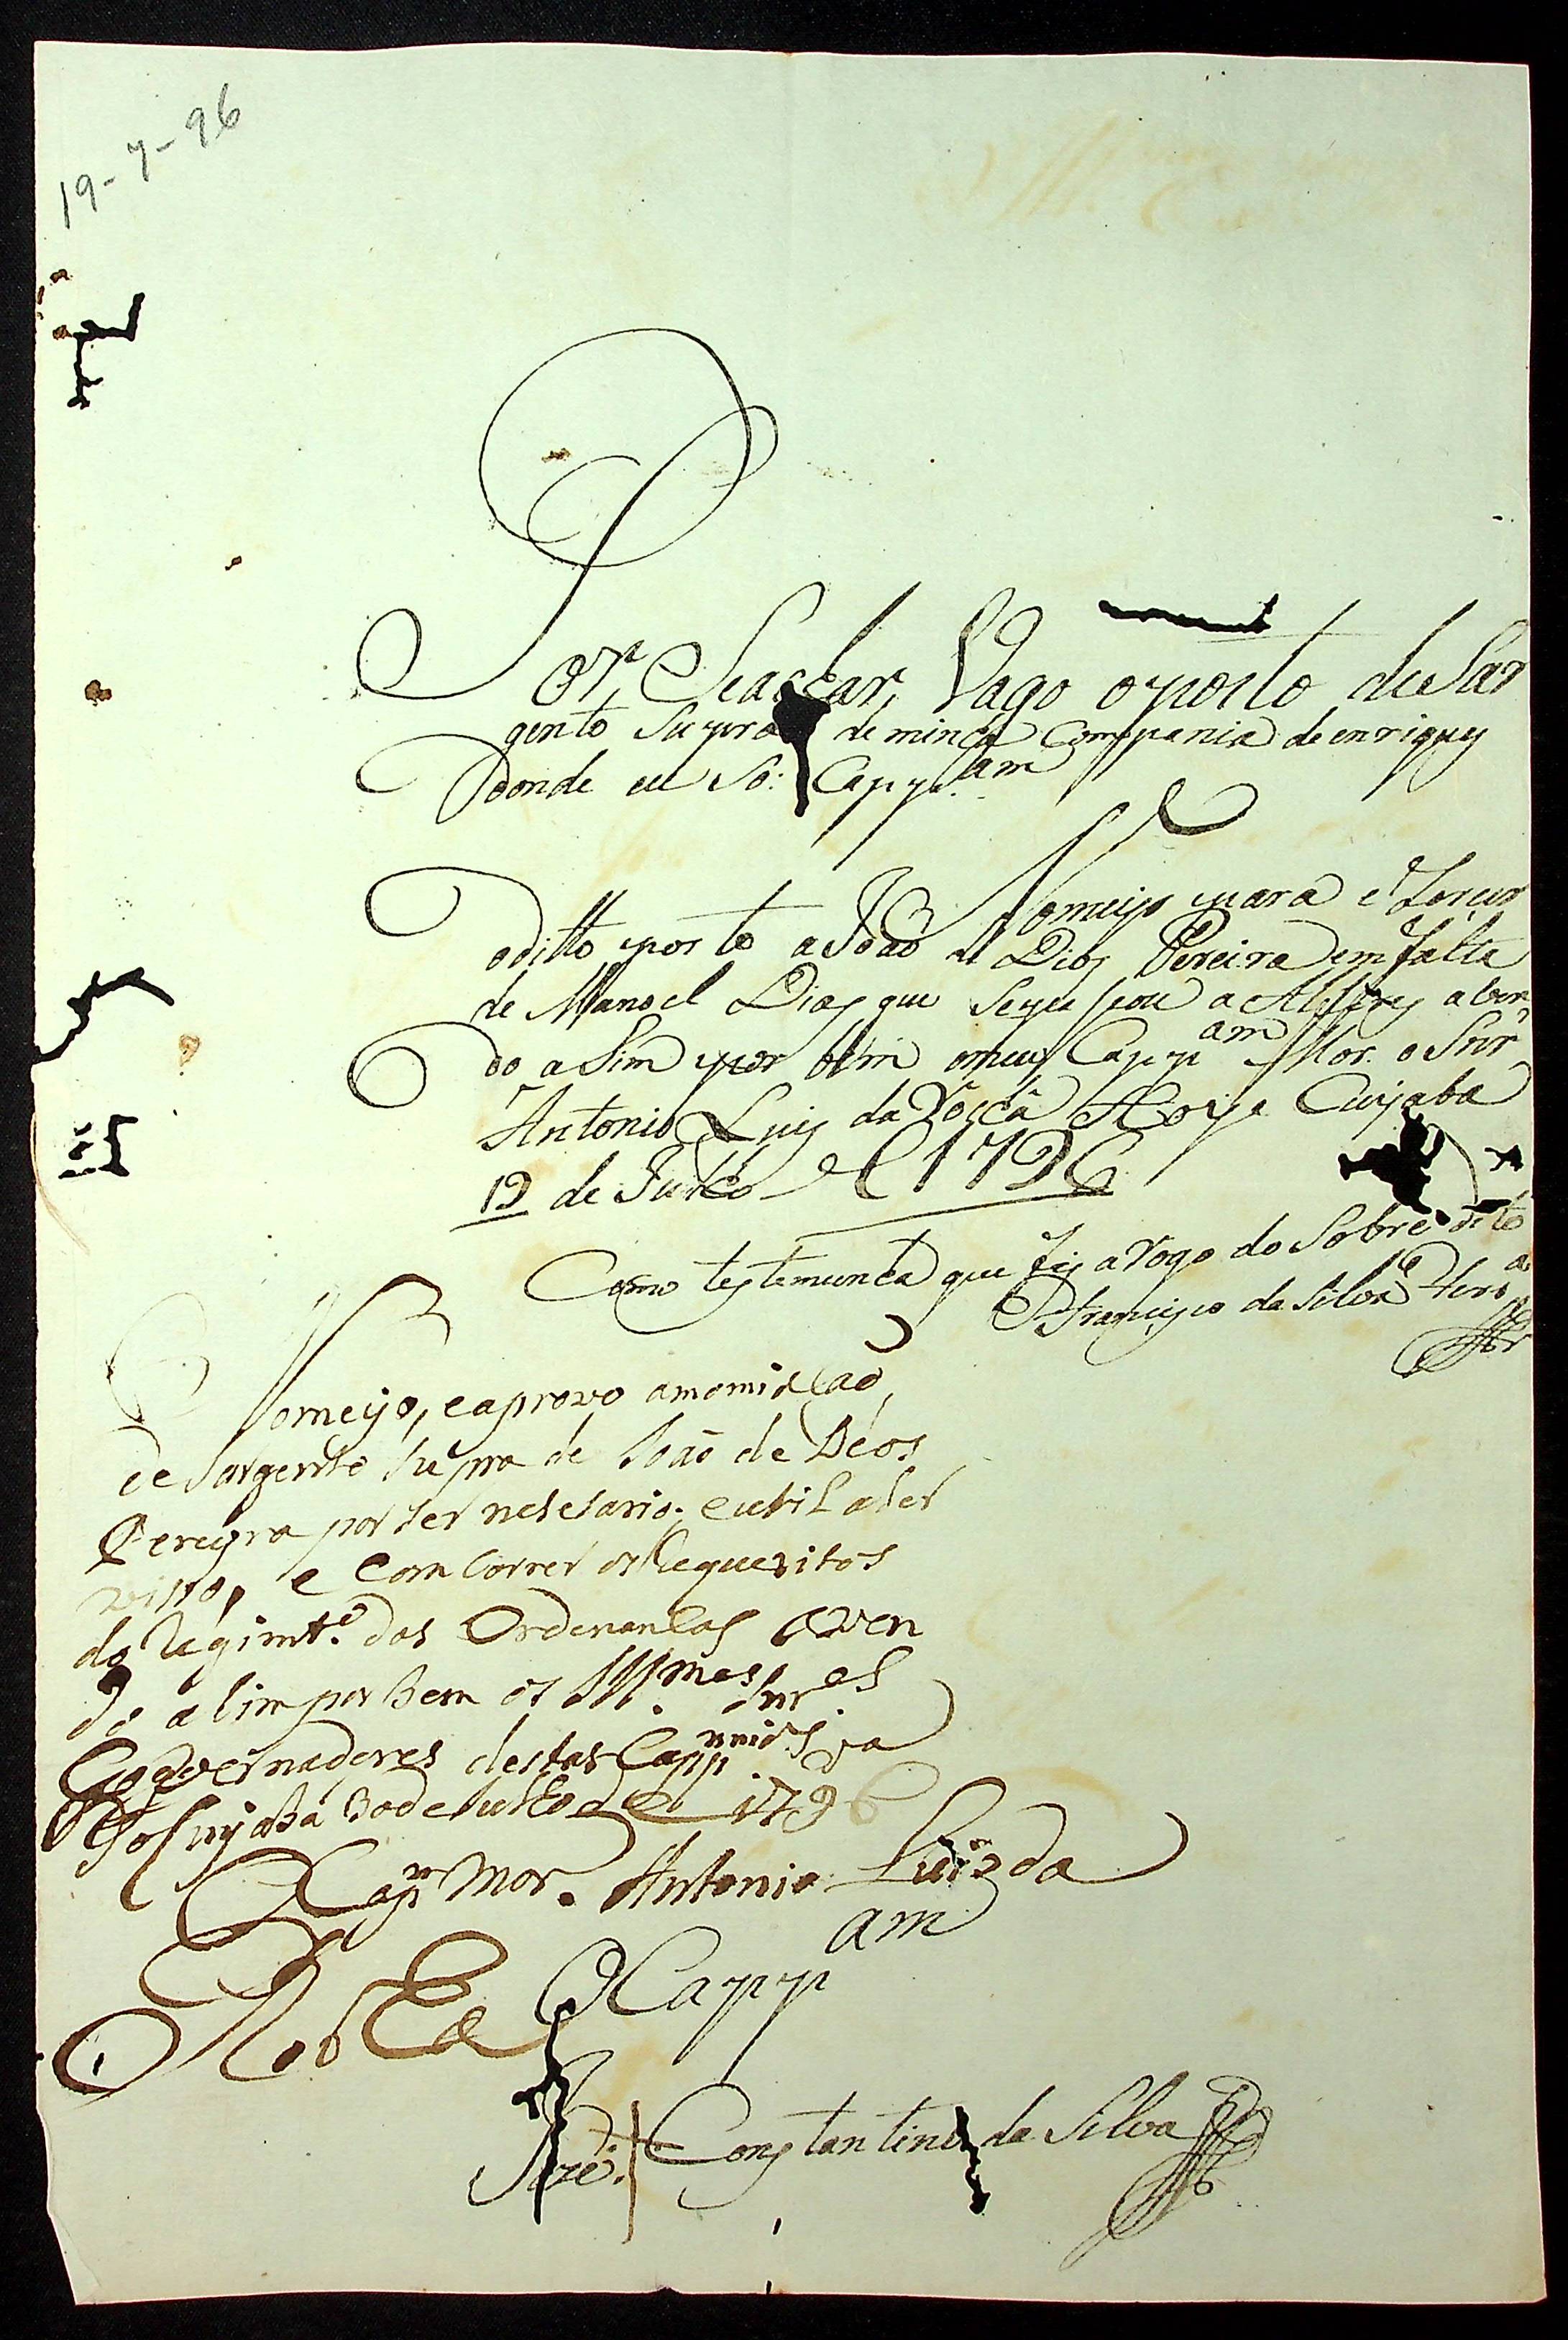 19-7-96
Por Seachar Vago oposto de Sar
gento Supra de minha Companhia de enriques
donde eu So: Capp.am
Nomeyo para e Zercer
oditto posto a João de Dios Pereira em falta
de Manoel Dias que Sepasou a Alferes aven
do aSim por bem omeu Capp.am Mor. o Snr
Antonio Luis da Róchâ Hoije Cuyaba
19 de Julho de 1796
Como testemunha que fis aRogo do Sobre dito
Francisco da Silva
Nomeyo, e aprovo anomiasaõ
de Sargento Supra de Joaõ de Deos
Pereyra por ser nesesario, eutil aSer
viso, e Com Correr os Requezitos
do Regimt.º das Ordenansas aven
do aSim por Bem os Ill.mos Snr.es
Governadores destas Capp.nnias V.a
do Cuyabá 20 de Julho de 1796
Cap.m Mor. Antonio Luis da
Rocha
O Capp.am
Joze Constantino da Silva